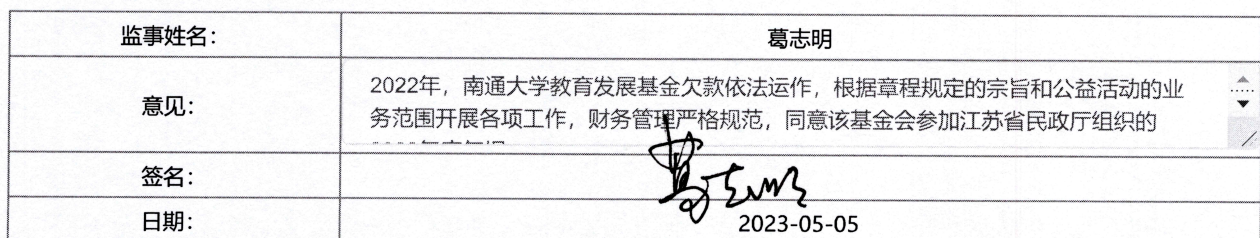 监事姓名： 葛志明
意见： 2022年，南通大学教育发展基金欠款依法运作，根据章程规定的宗旨和公益活动的业
务范围开展各项工作，财务管理严格规范，同意该基金会参加江苏省民政厅组织的
签名： 葛志明
日期： 2023-05-05